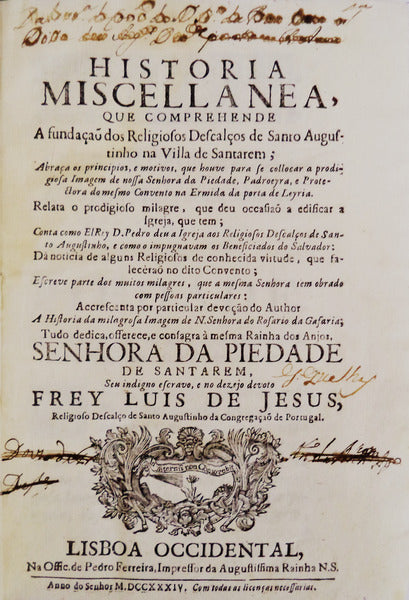 HISTORIA
MISCELLANEA,
QUE COMPREHENDE
A fundaçaõ dos Religiosos Descalços de Santo Augus-
tinho na Villa de Santarem;
Abraça os principios, e motivos, que houve para se collocar a prodi-
giosa Imagem de nossa Senhora da Piedade, Padroeyra, e Prote-
ctora do mesmo Convento na Ermida da porta de Leyria.
Relata o prodigioso milagre, que deu occasiaõ a edificar a
Igreja, que tem;
Conta como ElRey D. Pedro deu a Igreja aos Religiosos Descalços de San-
to Augustinho, e como o impugnavam os Beneficiados do Salvador:
Dá noticia de alguns Religiosos de conhecida virtude, que fa-
leceraõ no dito Convento;
Escreve parte dos muitos milagres, que a mesma Senhora tem obrado
com pessoas particulares:
Accrescenta por particular devoçaõ do Author
A Historia da milagrosa Imagem de N. Senhora do Rosario da Gafaria;
Tudo dedica, offerece, e consagra à mesma Rainha dos Anjos,
SENHORA DA PIEDADE
DE SANTAREM,
Seu indigno escravo, e no dezejo devoto
FREY LUIS DE JESUS,
Religioso Descalço de Santo Augustinho da Congregaçaõ de Portugal.
LISBOA OCCIDENTAL,
Na Offic. de Pedro Ferreira, Impressor da Augustissima Rainha N.S.
Anno do Senhor M.DCCXXXIV. Com todas as licenças necessarias.